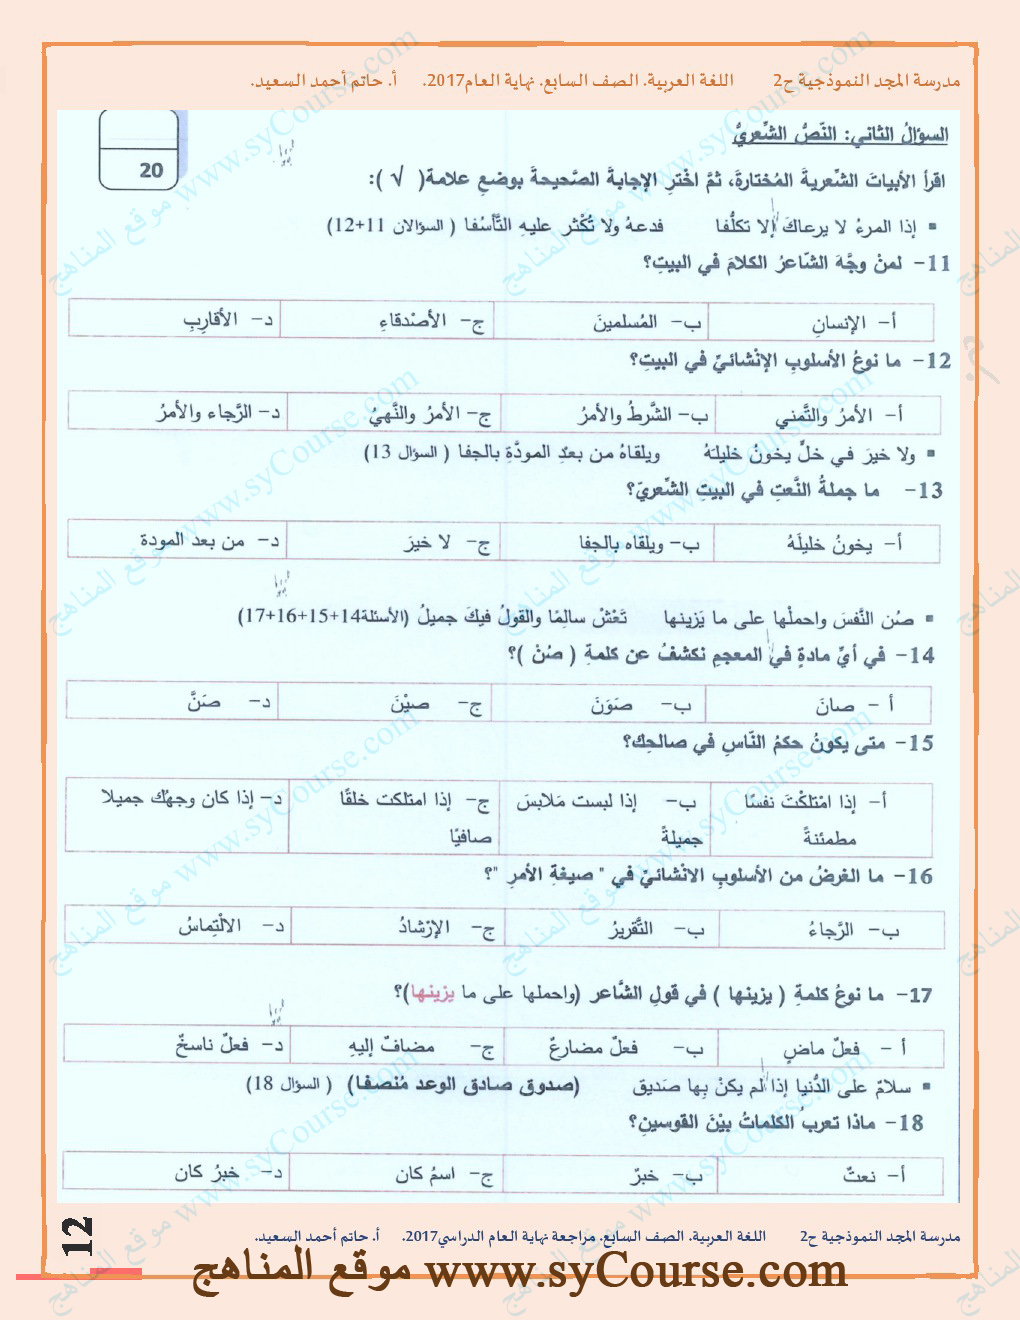 مدرسة المجد النموذجية ح2 اللغة العربية. الصف السابع. نهاية العام2017. أ. حاتم أحمد السعيد.
السؤالُ الثاني: النّصُّ الشّعريُّ
20
اقرأ الأبياتَ الشّعريةَ المُختارةَ، ثمَّ اخْترِ الإجابةَ الصّحيحةَ بوضعِ علامة( √ ):
▪ إذا المرءُ لا يرعاكَ إلا تكلُّفا فدعهُ ولا تُكْثر عليهِ التَّأسُفا ( السؤالان 11+12)
11- لمنْ وجَّهَ الشّاعرُ الكلامَ في البيتِ؟
أ- الإنسانِ ب- المُسلمينَ ج- الأصْدقاءِ د- الأقاربِ
12- ما نوعُ الأسلوبِ الإنْشائيِّ في البيتِ؟
أ- الأمرُ والتَّمني ب- الشَّرطُ والأمرُ ج- الأمرُ والنَّهيُ د- الرَّجاء والأمرُ
▪ ولا خيرَ في خلٍّ يخونُ خليلهُ ويلقاهُ من بعدِ المودَّةِ بالجفا ( السؤال 13)
13- ما جملةُ النَّعتِ في البيتِ الشّعريّ؟
أ- يخونُ خليلَهُ ب- ويلقاه بالجفا ج- لا خيرَ د- من بعد المودة
▪ صُن النَّفسَ واحملْها على ما يَزينها تَعْشْ سالمًا والقولُ فيكَ جميلُ (الأسئلة14+15+16+17)
14- في أيِّ مادةٍ في المعجمِ نكشفُ عن كلمةِ ( صُنْ )؟
أ - صانَ ب- صوَنَ ج- صيْنَ د- صَنَّ
15- متى يكونُ حكمُ النّاسِ في صالحِك؟
أ- إذا امْتلكْتَ نفسًا مطمئنةً ب- إذا لبست مَلابسَ جميلةً ج- إذا امتلكت خلقًا صافيًا د- إذا كان وجهُك جميلا
16- ما الغرضُ من الأسلوبِ الانْشائيّ في " صيغةِ الأمرِ "؟
ب- الرَّجاءُ ب- التَّقريرُ ج- الإرْشادُ د- الالْتِماسُ
17- ما نوعُ كلمةِ ( يزينها ) في قولِ الشّاعر (واحملها على ما يزينها)؟
أ - فعلٌ ماضٍ ب- فعلٌ مضارعٌ ج- مضافٌ إليهِ د- فعلٌ ناسخٌ
▪ سلامٌ على الدُّنيا إذا لم يكنْ بِها صَديق (صدوق صادق الوعد مُنصفا) ( السؤال 18)
18- ماذا تعربُ الكلماتُ بيْنَ القوسينِ؟
أ- نعتٌ ب- خبرٌ ج- اسمُ كان د- خبرُ كان
مدرسة المجد النموذجية ح2 اللغة العربية. الصف السابع. مراجعة نهاية العام الدراسي2017. أ. حاتم أحمد السعيد.
12
موقع المناهج www.syCourse.com